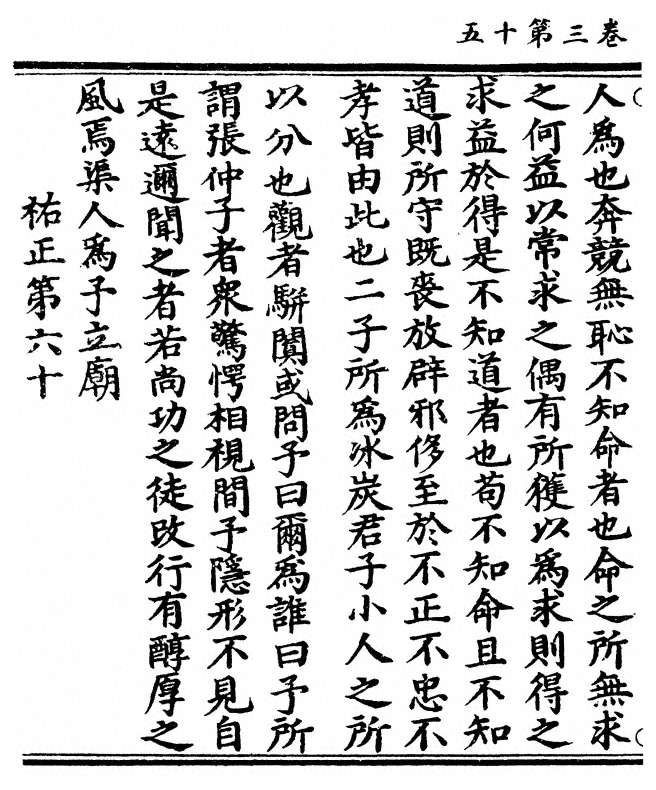 卷三第十五
人為也奔競無恥不知命者也命之所無求
之何益以常求之偶有所獲以為求則得之
求益於得是不知道者也苟不知命且不知
道則所守既喪放辟邪侈至於不正不忠不
孝皆由此也二子所為冰炭君子小人之所
以分也觀者駢闐或問予曰爾為誰曰予所
謂張仲子者衆驚愕相視間予隱形不見自
是遠邇聞之者若尚功之徒改行有醇厚之
風焉渠人為予立廟
祐正第六十